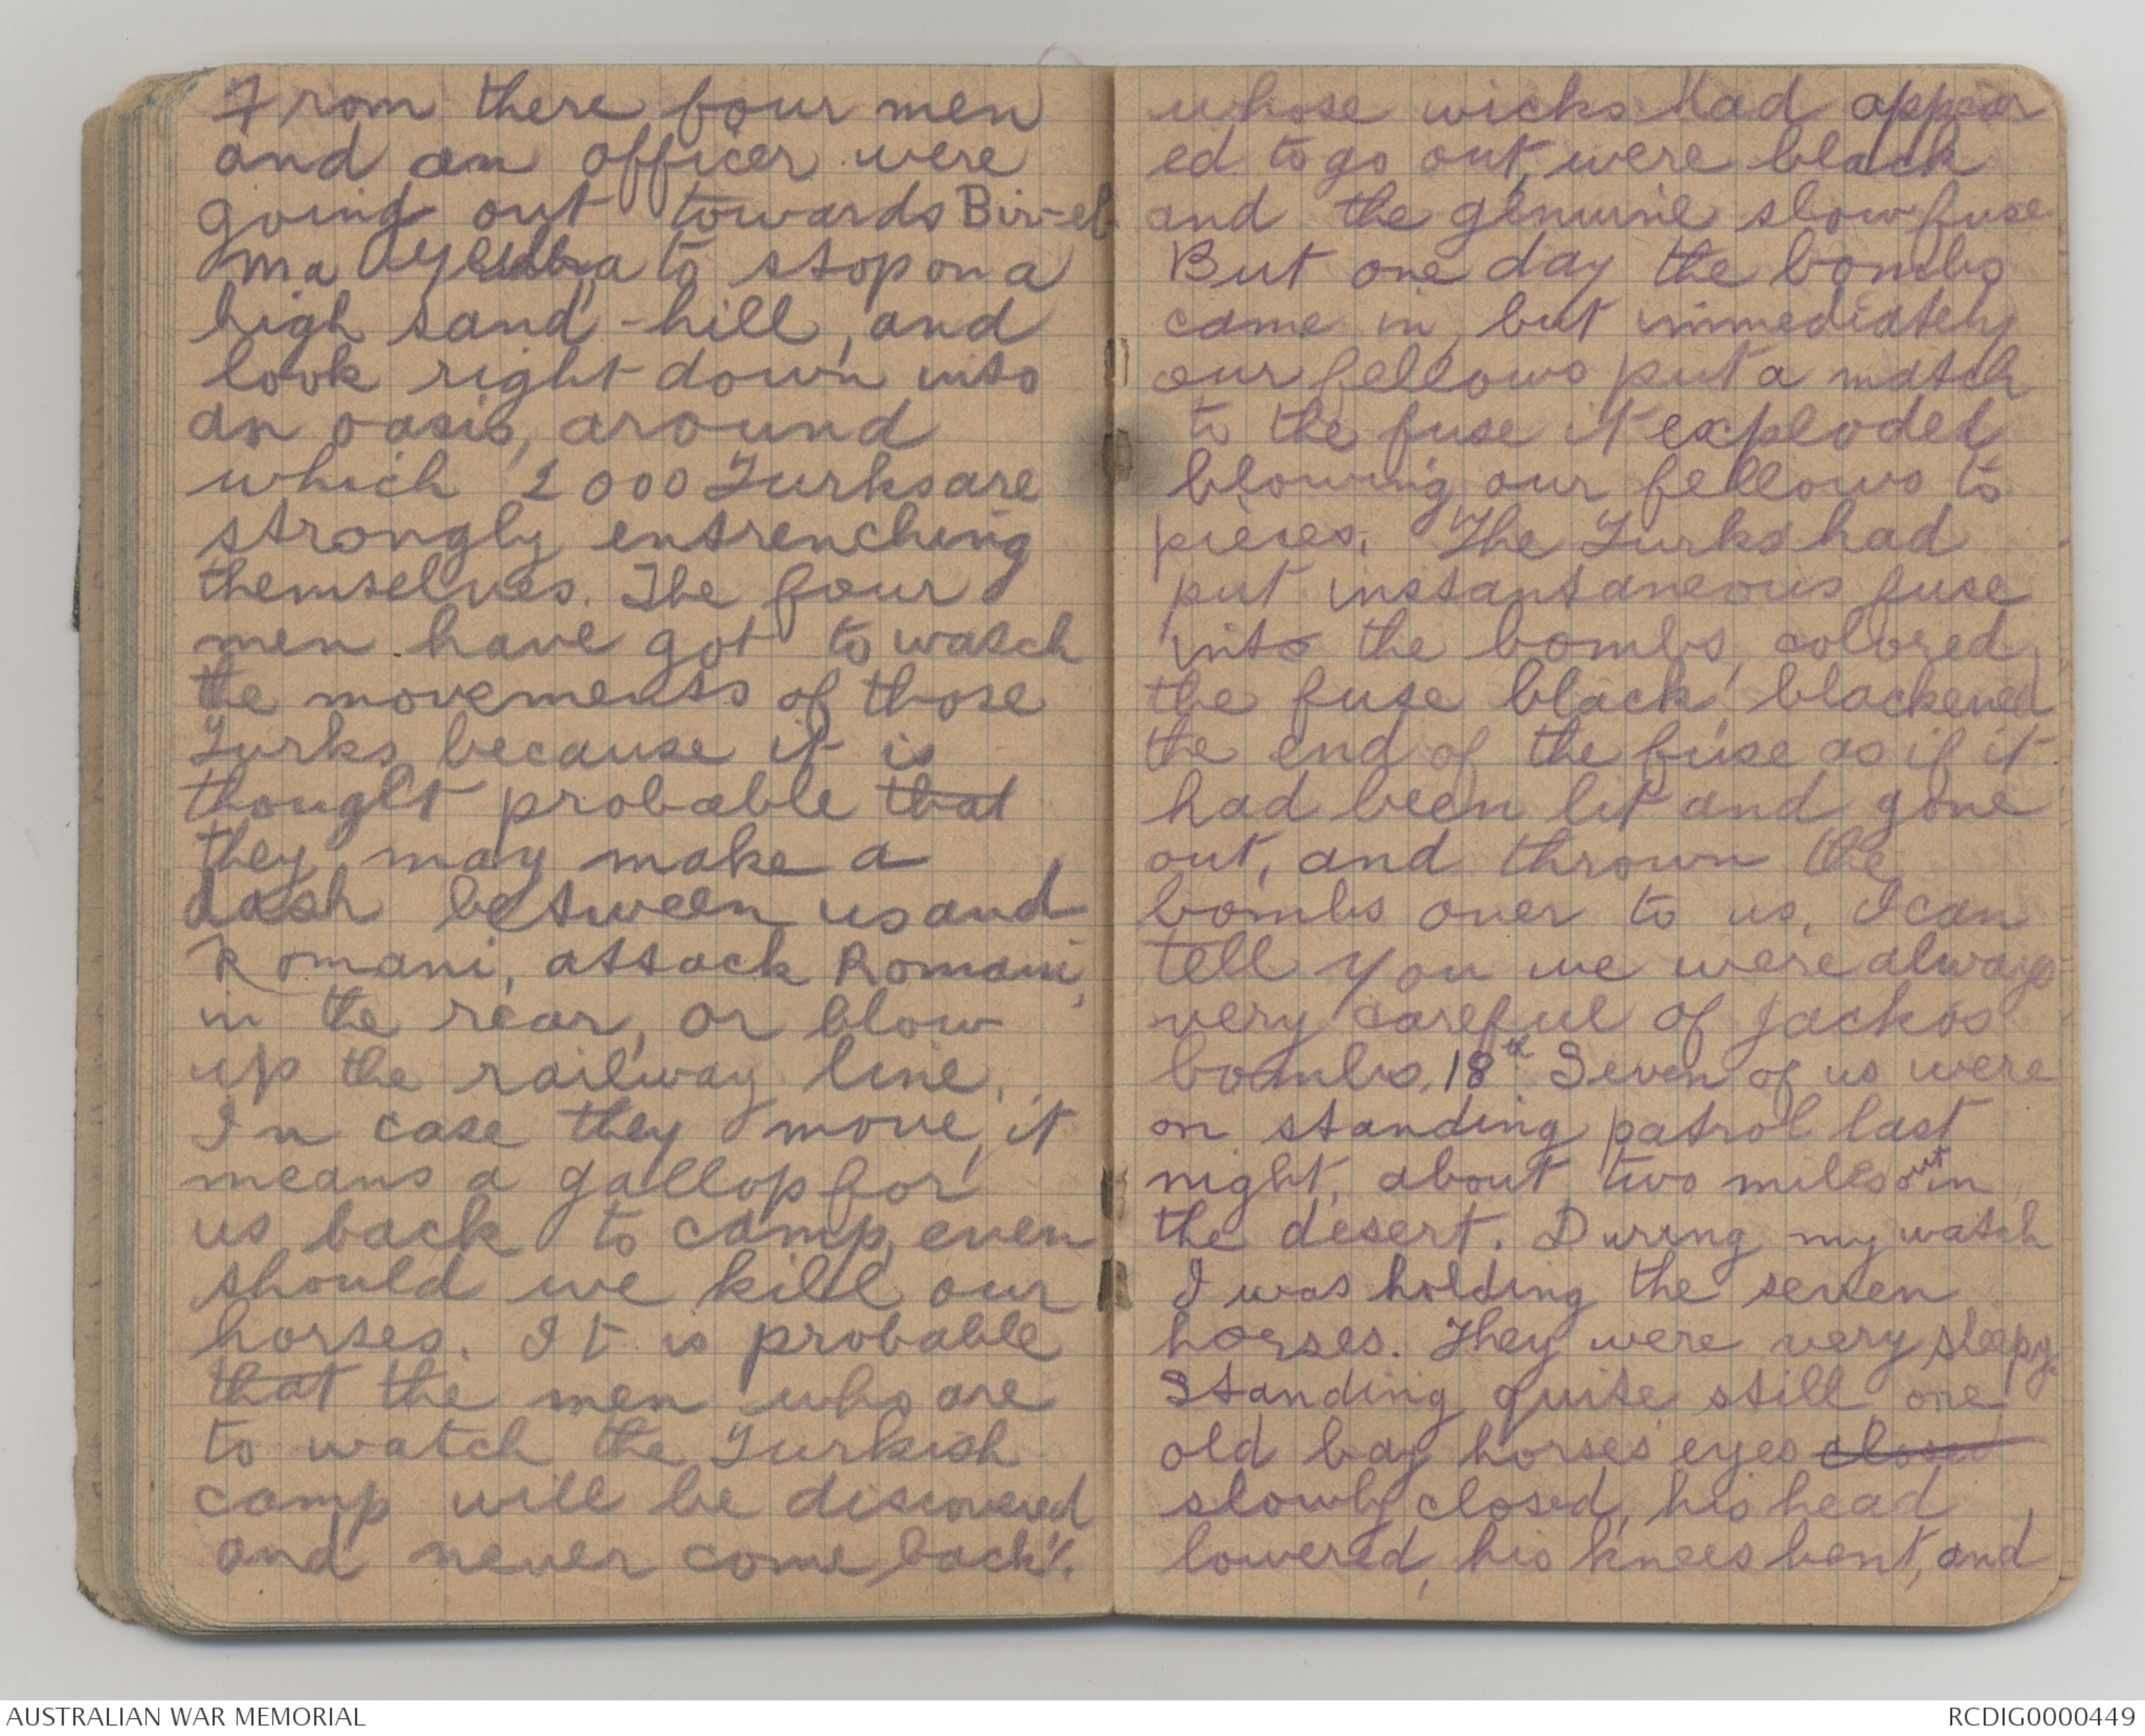 From there four men
and an officer were
going out towards Bir-el-
Ma to stop on a
high sand-hill, and
look right down into
an oasis, around
which 2000 Turks are
strongly entrenching
themselves. The four
men have got to watch
the movements of those
Turks because it is
thought probable that
they may make a
dash between us and
Romani, attack Romani,
in the rear, or blow
up the railway line.
In case they move, it
means a gallop for
us back to camp, even
should we kill our
horses. It is probable
that the men who are
to watch the Turkish
camp will be discovered
and never come back.
whose wicks had appear
ed to go out, were black
and the genuine slow fuse.
But one day the bombs
came in, but immediately
our fellows put a match
to the fuse it exploded
blowing our fellows to
pieces. The Turks had
put instantaneous fuse
into the bombs, colored
the fuse black, blackened
the end of the fuse as if it
had been lit and gone
out, and thrown the
bombs over to us. I can
tell you we were always
very careful of Jackos
bombs. 18th Seven of us were
on standing patrol last
night, about two miles out in
the desert. During my watch
I was holding the seven
horses. They were very sleepy.
Standing quite still one
old bay horses' eyes closed
slowly closed, his head
lowered, his knees bent, and
AUSTRALIAN WAR MEMORIAL
RCDIG0000449